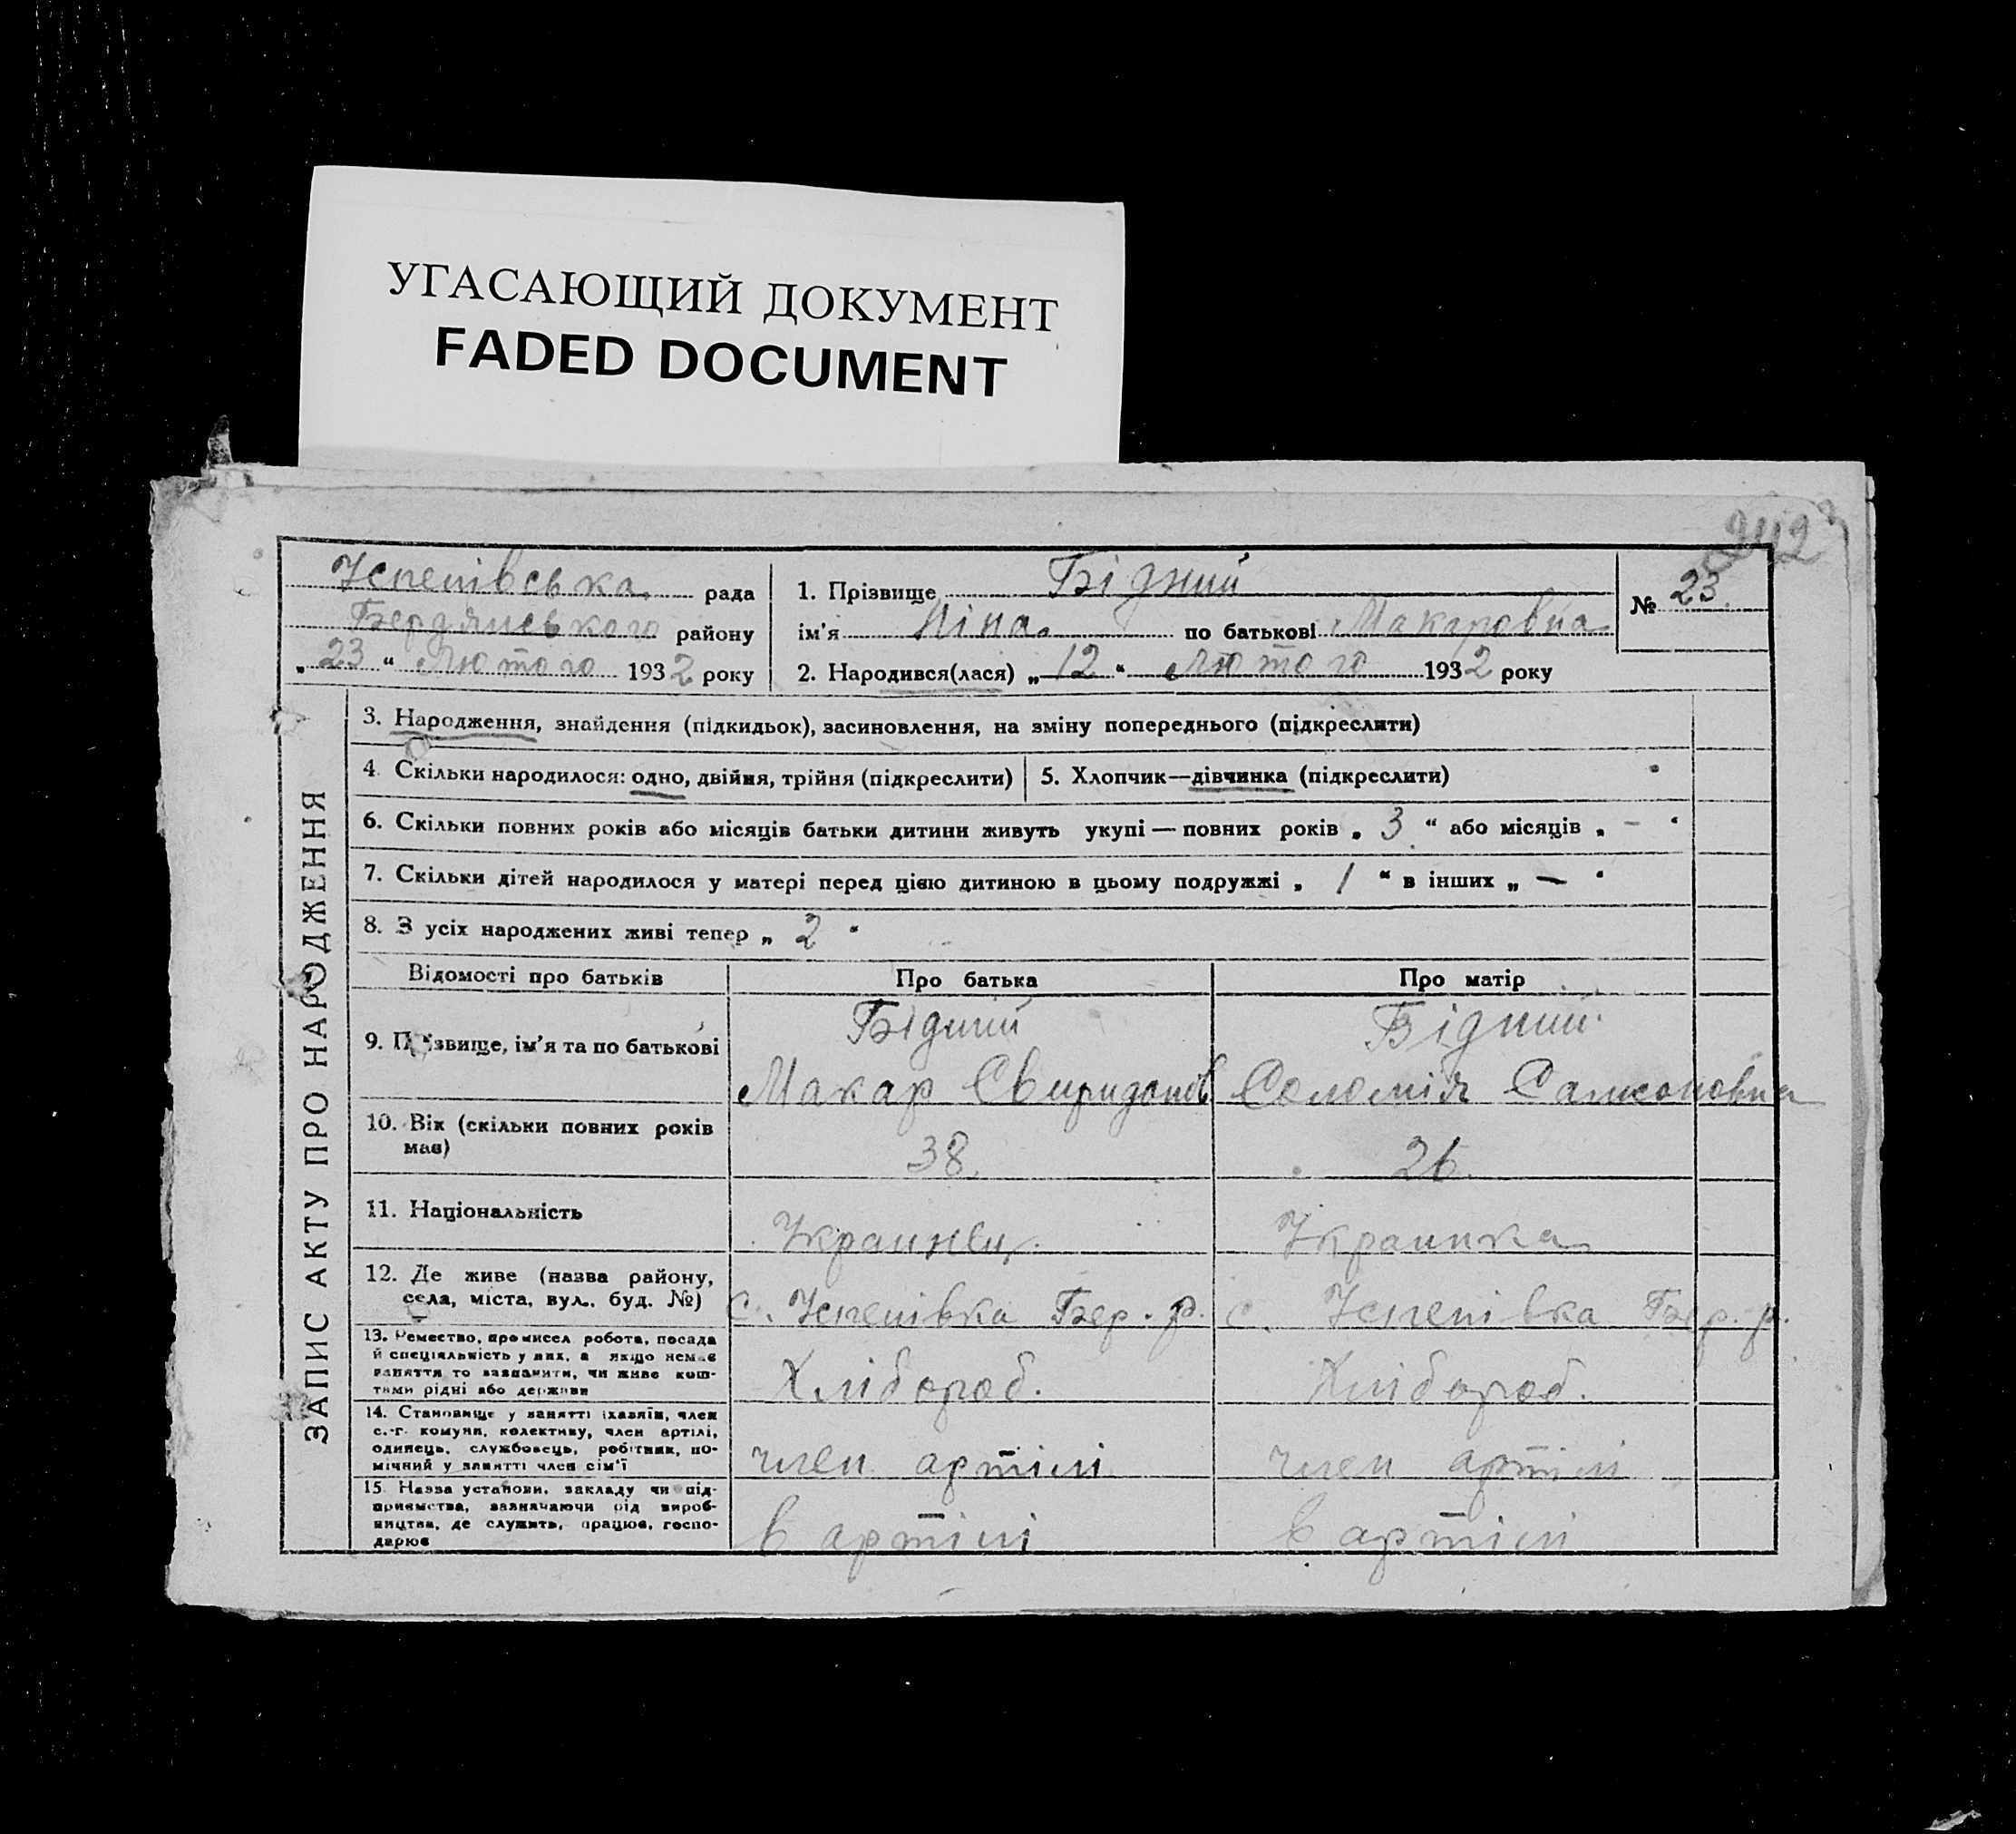 УГАСАЮЩИЙ ДОКУМЕНТ
FADED DOCUMENT
242
Успепівська рада
Бердянського району
„ 23 “ Лютого 1932 року
1. Прізвище Бідний
ім'я Ніна по батькові Макаровна
2. Народився(лася) „ 12 “ Лютого 1932 року
№ 23.
ЗАПИС АКТУ ПРО НАРОДЖЕННЯ
3. Народження, знайдення (підкидьок), засиновлення, на зміну попереднього (підкреслити)
4. Скільки народилося: одно, двійня, трійня (підкреслити)
5. Хлопчик—дівчинка (підкреслити)
6. Скільки повних років або місяців батьки дитини живуть укупі — повних років „ 3 “ або місяців „ – “
7. Скільки дітей народилося у матері перед цією дитиною в цьому подружжі „ 1 “ в інших „ — “
8. З усіх народжених живі тепер „ 2 “
Відомості про батьків
Про батька
Про матір
9. Прізвище, ім'я та по батькові
Бідний
Макар Свиридонів
Бідний
Соломія Самсоновна
10. Вік (скільки повних років
має)
38.
26.
11. Національність
Украинец.
Украинка
12. Де живе (назва району,
села, міста, вул., буд. №)
с. Успепівка Бер. р.
с. Успепівка Бер. р.
13. Ремество, промисел робота, посада
й спеціяльність у них, а якщо немає
заняття то зазначити, чи живе кош-
тами рідні або держави
Хлібороб.
Хлібороб.
14. Становище у занятті (хазяїн, член
с.-г. комуни, колективу, член артілі,
одинець, службовець, робітник, по-
мічний у занятті член сім'ї
член артілі
член артілі
15. Назва установи, закладу чи під-
приємства, зазначаючи рід вироб-
ництва, де служить, працює, госпо-
дарює
в артілі
в артілі